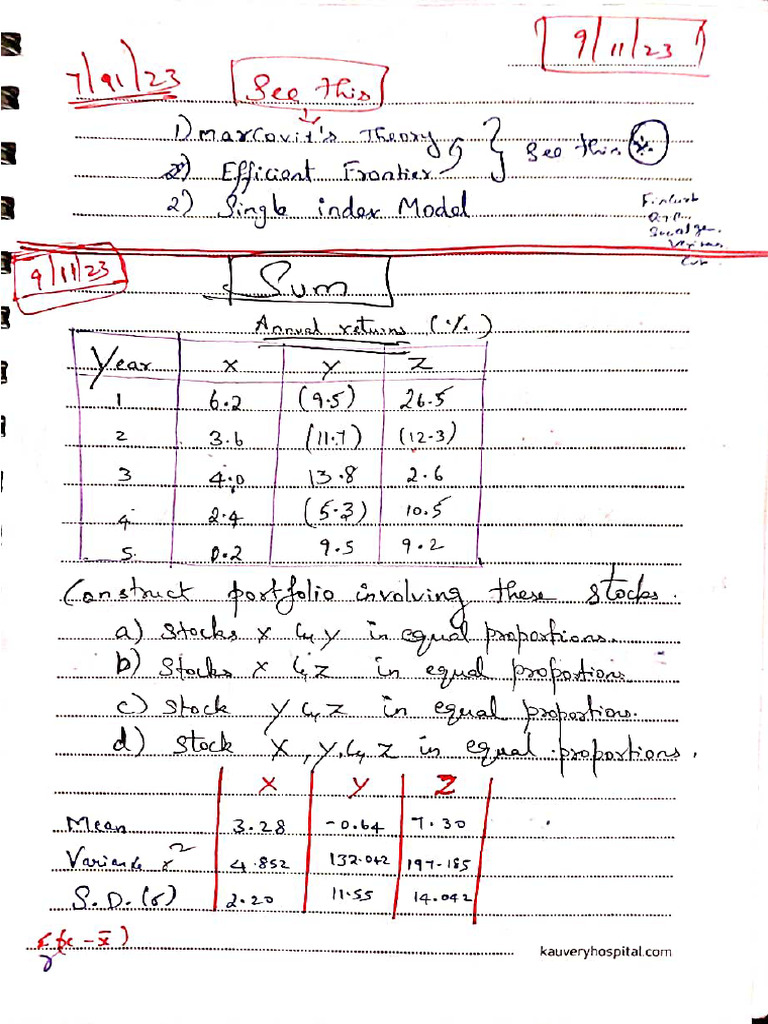 9/11/23
7/91/23 See this
1) Marcovit's Theory
2) Efficient Frontier } See this
2) Single index Model
9/11/23 Sum
Annual returns (%)
Year X Y Z
1 6.2 (9.5) 26.5
2 3.6 (11.7) (12.3)
3 4.0 13.8 2.6
4 2.4 (5.3) 10.5
5 0.2 9.5 9.2
Construct portfolio involving these stocks.
a) Stocks X & Y in equal proportions.
b) Stocks X & Z in equal proportion.
c) Stock Y & Z in equal proportion.
d) Stock X, Y, & Z in equal proportions.
X Y Z
Mean 3.28 -0.64 7.30
Variance x² 4.852 132.042 197.185
S.D. (σ) 2.20 11.55 14.042
Σ(x - x̄)
kauveryhospital.com